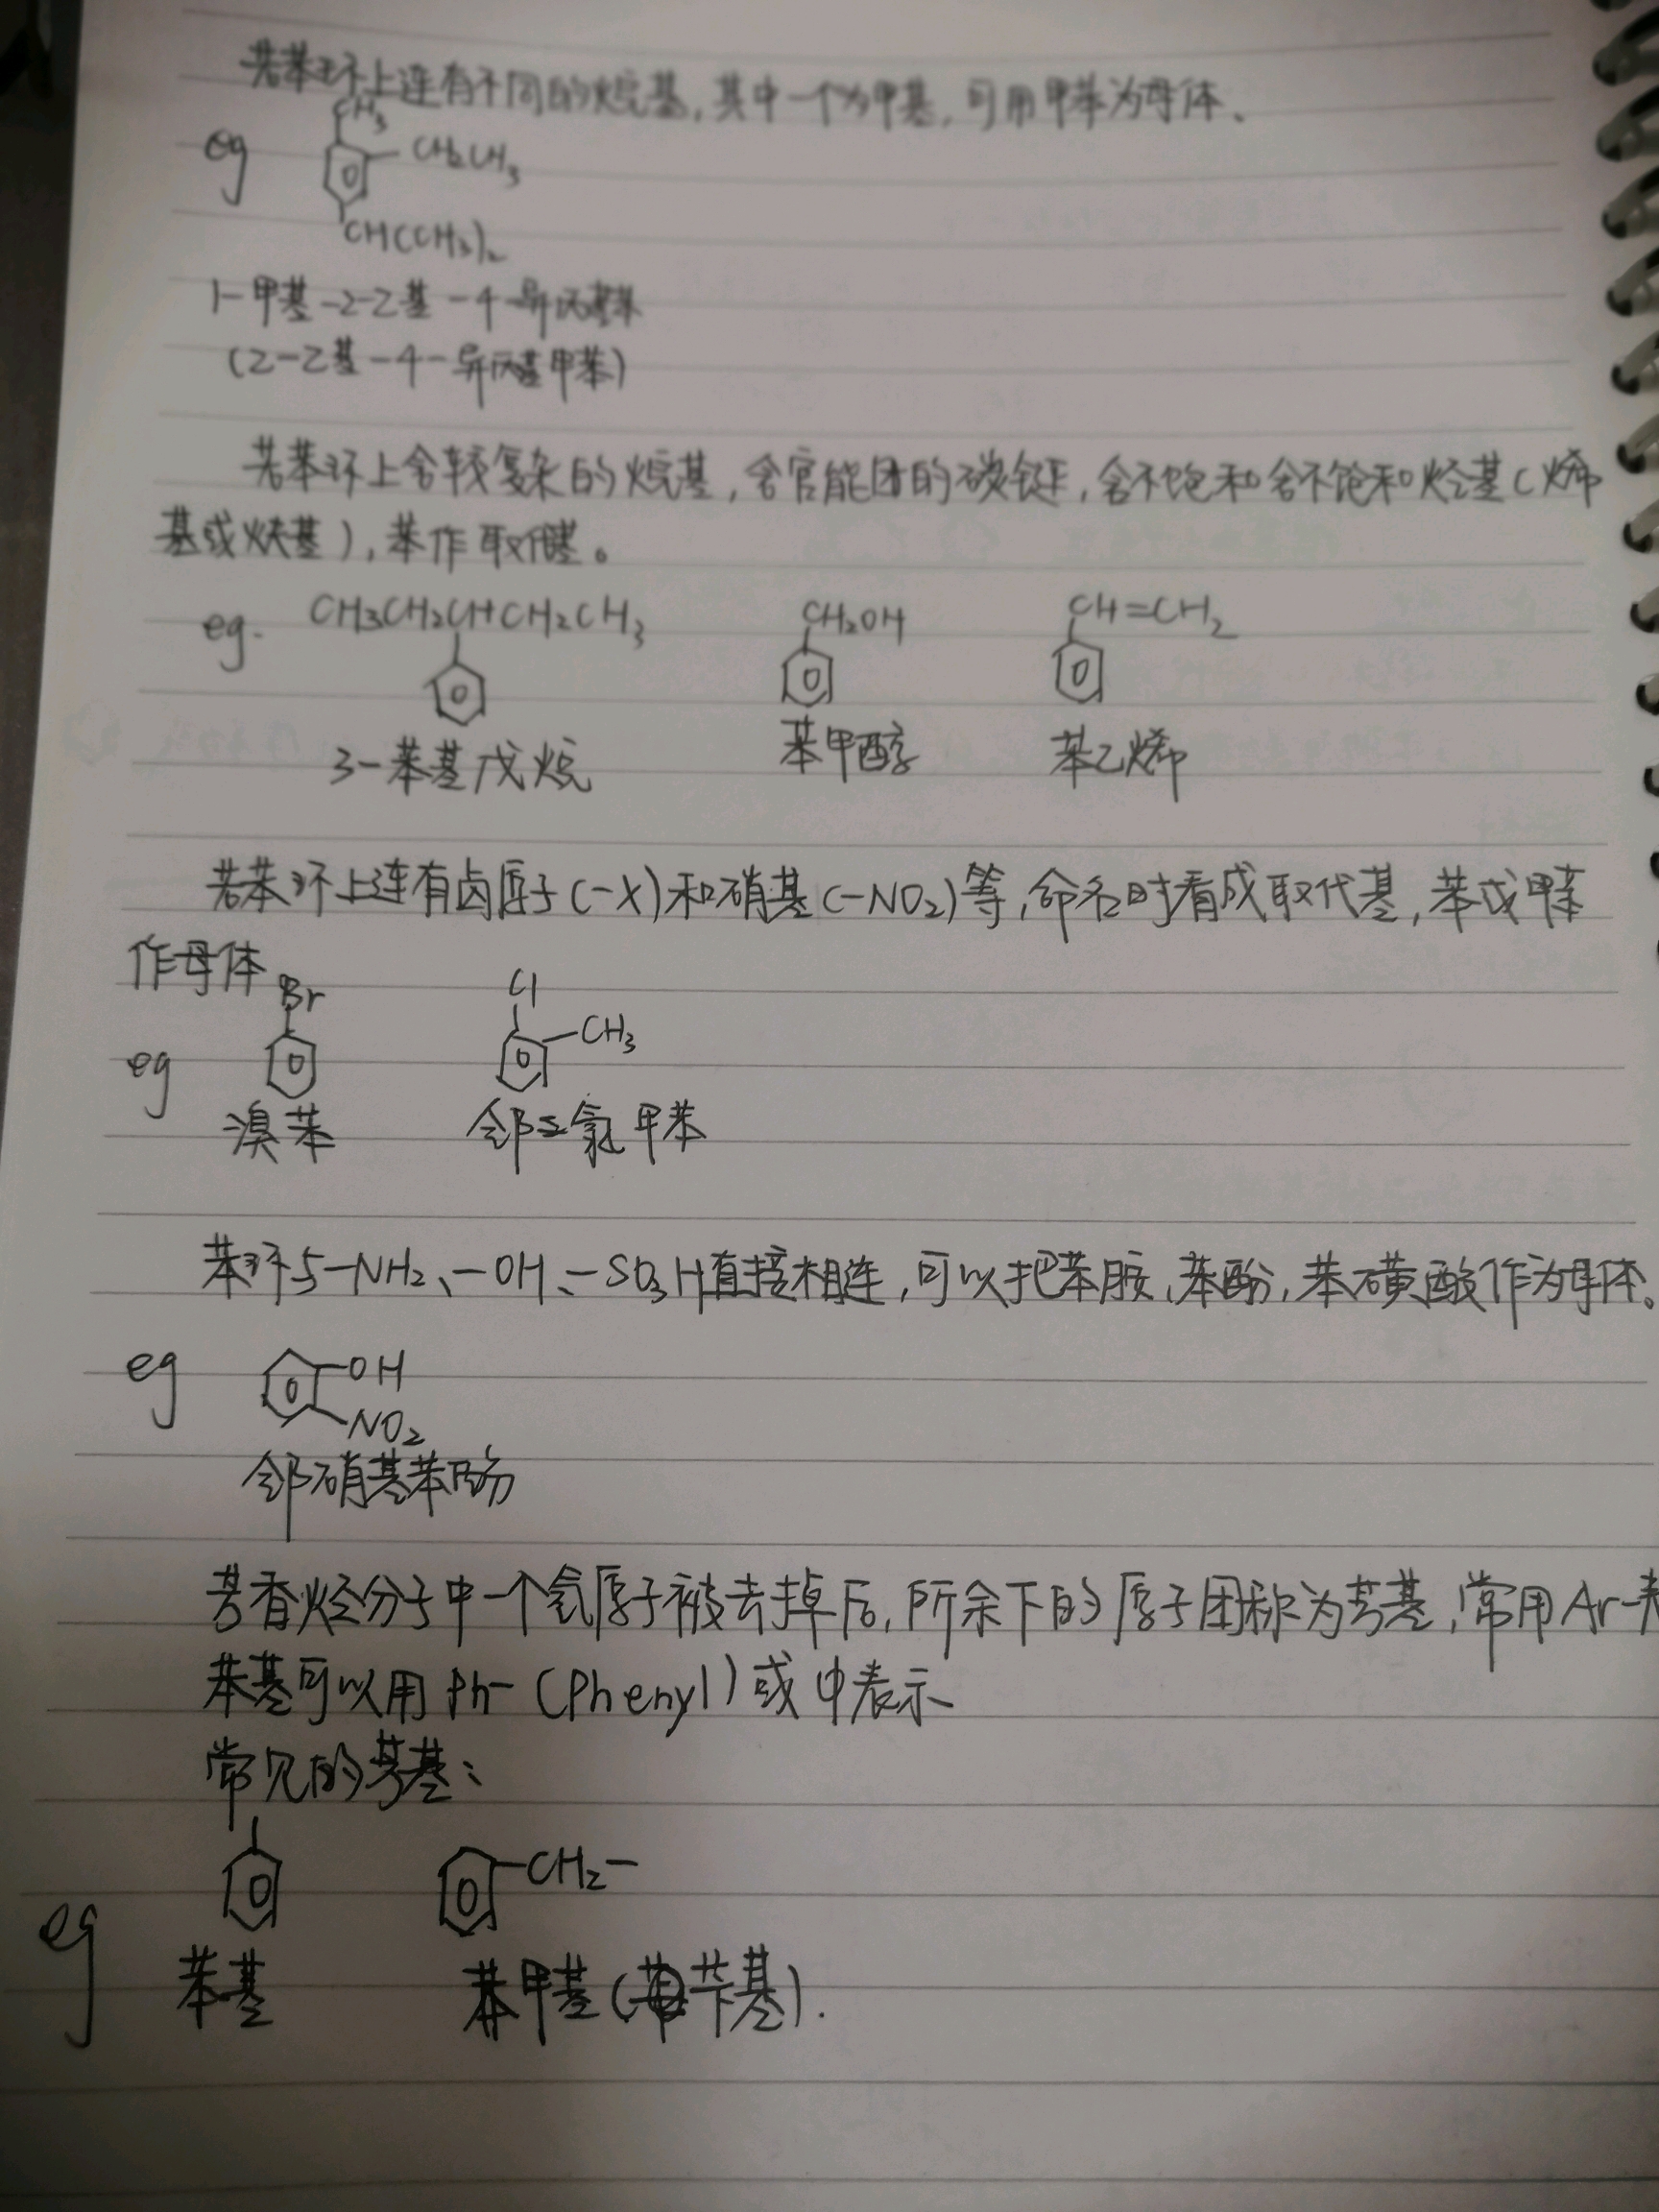 若苯环上连有不同的烷基，其中一个为甲基，可用甲苯为母体、
CH3
eg
CH2CH3
CH(CH3)2
1-甲基-2-乙基-4-异丙基苯
(2-乙基-4-异丙基甲苯)
若苯环上含较复杂的烷基，含官能团的碳链，含不饱和含不饱和烃基(烯
基或炔基)，苯作取代基。
eg. CH3CH2CHCH2CH3 CH2OH CH=CH2
3-苯基戊烷 苯甲醇 苯乙烯
若苯环上连有卤原子(-X)和硝基(-NO2)等，命名时看成取代基，苯或甲苯
作母体
Br Cl
CH3
eg
溴苯 邻氯甲苯
苯环与-NH2、-OH、-SO3H直接相连，可以把苯胺、苯酚，苯磺酸作为母体。
eg -OH
-NO2
邻硝基苯酚
芳香烃分子中一个氢原子被去掉后，所余下的原子团称为芳基，常用Ar-表
苯基可以用Ph-(Phenyl)或中表示
常见的芳基：
-CH2-
eg
苯基 苯甲基(苄基).